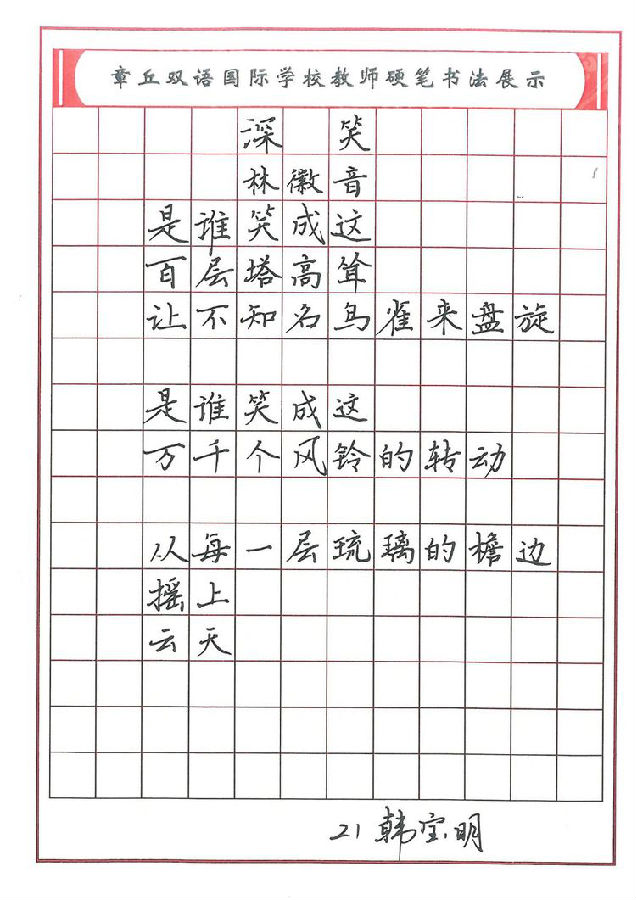 章丘双语国际学校教师硬笔书法展示
深笑
林徽音
是谁笑成这
百层塔高耸
让不知名鸟雀来盘旋
是谁笑成这
万千个风铃的转动
从每一层琉璃的檐边
摇上
云天
21 韩宝明